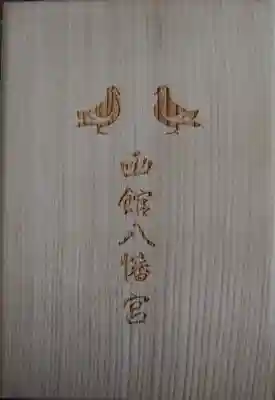 函館八幡宮